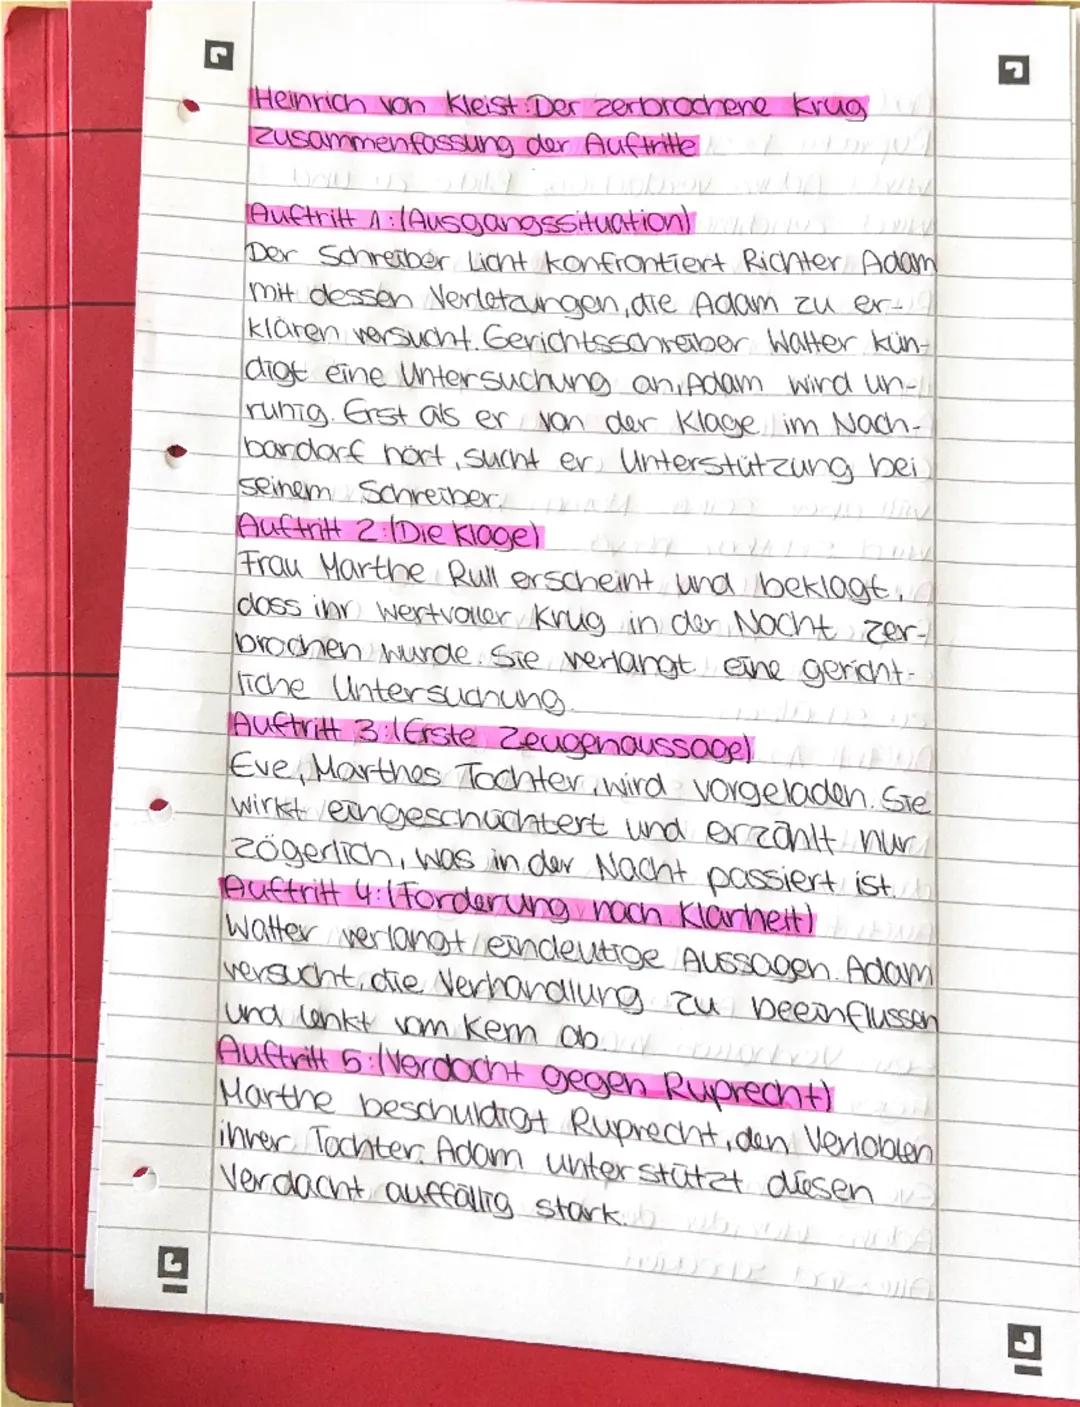 Heinrich von Kleist: Der zerbrochene Krug
Zusammenfassung der Auftritte
Auftritt 1: (Ausgangssituation)
Der Schreiber Licht konfrontiert Richter Adam
mit dessen Verletzungen, die Adam zu er-
klären versucht. Gerichtsschreiber Walter kün-
digt eine Untersuchung an, Adam wird un-
ruhig. Erst als er von der Klage im Nach-
bardorf hört, sucht er Unterstützung bei
seinem Schreiber.
Auftritt 2: (Die Klage)
Frau Marthe Rull erscheint und beklagt,
dass ihr wertvoller Krug in der Nacht zer-
brochen wurde. Sie verlangt eine gericht-
liche Untersuchung.
Auftritt 3: (Erste Zeugenaussage)
Eve, Marthes Tochter, wird vorgeladen. Sie
wirkt eingeschüchtert und erzählt nur
zögerlich, was in der Nacht passiert ist.
Auftritt 4: (Forderung nach Klarheit)
Walter verlangt eindeutige Aussagen. Adam
versucht, die Verhandlung zu beeinflussen
und lenkt vom Kern ab.
Auftritt 5: (Verdacht gegen Ruprecht)
Marthe beschuldigt Ruprecht, den Verlobten
ihrer Tochter. Adam unterstützt diesen
Verdacht auffällig stark.